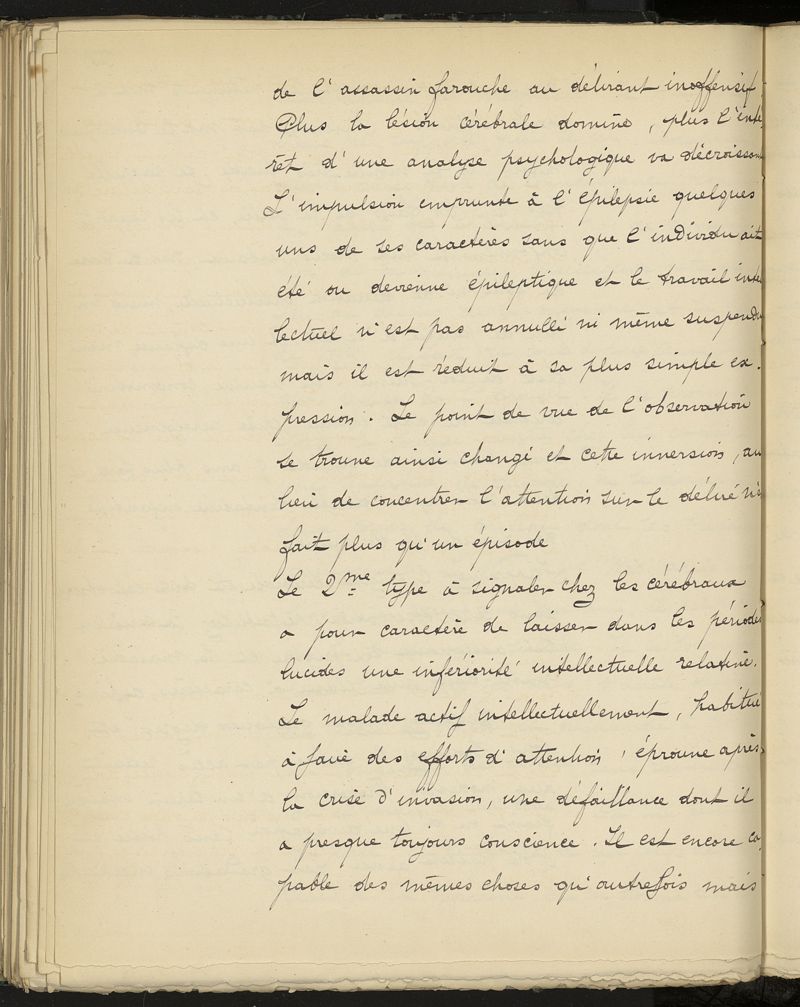 de l'assassin farouche au délirant inoffensif.
Plus la lésion cérébrale domine, plus l'inté
rêt d'une analyse psychologique va décroissant
L'impulsion emprunte à l'épilepsie quelques
uns de ses caractères sans que l'individu ait
été ou devienne épileptique et le travail intel
lectuel n'est pas annullé ni même suspendu
mais il est réduit à sa plus simple ex.
pression. Le point de vue de l'observation
se trouve ainsi changé et cette inversion, au
lieu de concentrer l'attention sur le délire n'en
fait plus qu'un épisode
Le 2me type à signaler chez les cérébraux
a pour caractère de laisser dans les périodes
lucides une infériorité intellectuelle relative.
Le malade actif intellectuellement, habitué
à faire des efforts d'attention, éprouve après
la crise d'invasion, une défaillance dont il
a presque toujours conscience. Il est encore ca
pable des mêmes choses qu'autrefois mais